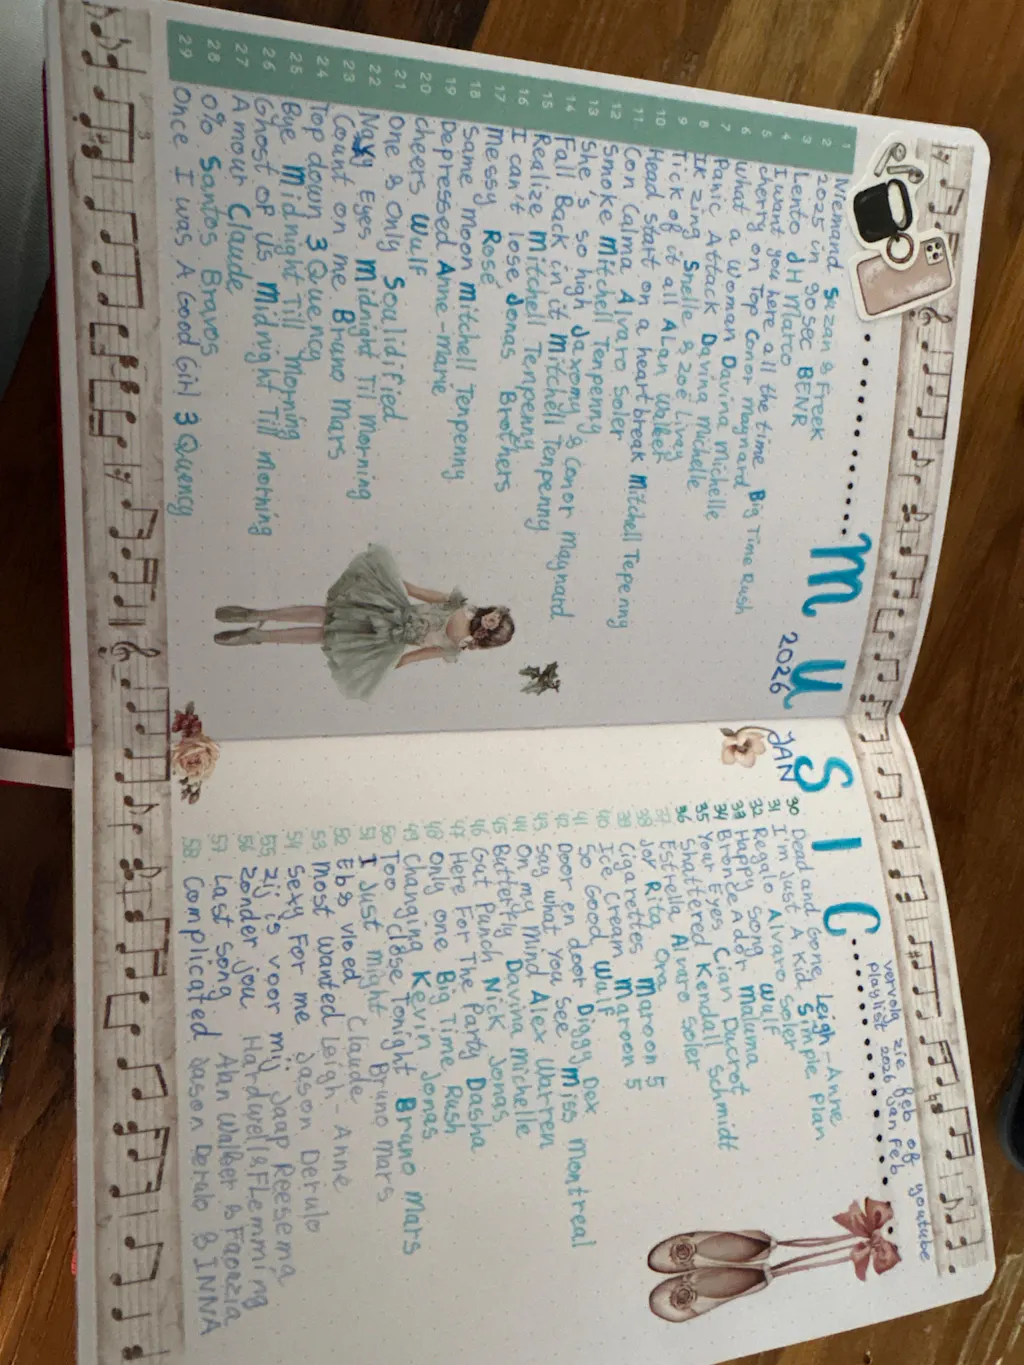 MUSIC
2026 JAN
vervolg zie feb of youtube
playlist 2026 jan feb
1 Niemand Suzan & Freek
2 2025 in gosec BENR
3 Lento JH Marco
4 I want you here all the time Big Time Rush
5 cherry on Top Conor maynard
6 what a woman Davina Michelle
7 Panic Attack Davina michelle
8 Ik zing Snelle & Zoë Livay
9 Tick of it all ALan Walker
10 Head start on a heartbreak Mitchell Tepenny
11 Con Calma Alvaro Soler
12 Smoke Mitchell Tenpenny
13 She's so high Jaxomy & Conor Maynard
14 Fall Back in it Mitchell Tenpenny
15 Realize Mitchell Tenpenny
16 I can't lose Jonas Brothers
17 messy Rosé
18 Same moon mitchell Tenpenny
19 Depressed Anne-marie
20 cheers Wulf
21 One & Only Soalidified
22 Navy Eyes Midnight Til Morning
23 Count on me Bruno Mars
24 Top down 3 Quency
25 Bye Midnight Till Morning
26 Ghost of us Midnight Till Morning
27 Amour Claude
28 0% Santos Bravos
29 Once I was A Good Girl 3 Quency
30 Dead and Gone Leigh-Anne
31 I'm Just A Kid Simple Plan
32 Regalo Alvaro Soler
33 Happy song Wulf
34 Bronde Ador Maluma
35 Your Eyes Cian Ducrot
36 Shattered Kendall Schmidt
37 Estrella Alvaro Soler
38 Joy Rita Ora
39 Cigarettes Maroon 5
40 Ice Cream Maroon 5
41 So Good Wulf
42 Door en door Diggy Dex miss montreal
43 Say what You See Alex Warren
44 On my Mind Davina michelle
45 Butterfly Nick Jonas
46 Gut Punch Nick Jonas
47 Here For The Party Dasha
48 Only one Big Time Rush
49 Changing Kevin Jonas
50 Too Close Tonight Bruno Mars
51 I Just might Bruno mars
52 Eb & vloed Claude
53 most wanted Leigh-Anne
54 Sexy For me Jason Derulo
55 zij is voor mij Jaap Reesema
56 zonder jou Hardwell & FLemming
57 Last song Alan Walker & Faouzia
58 Complicated Jason Derulo & INNA